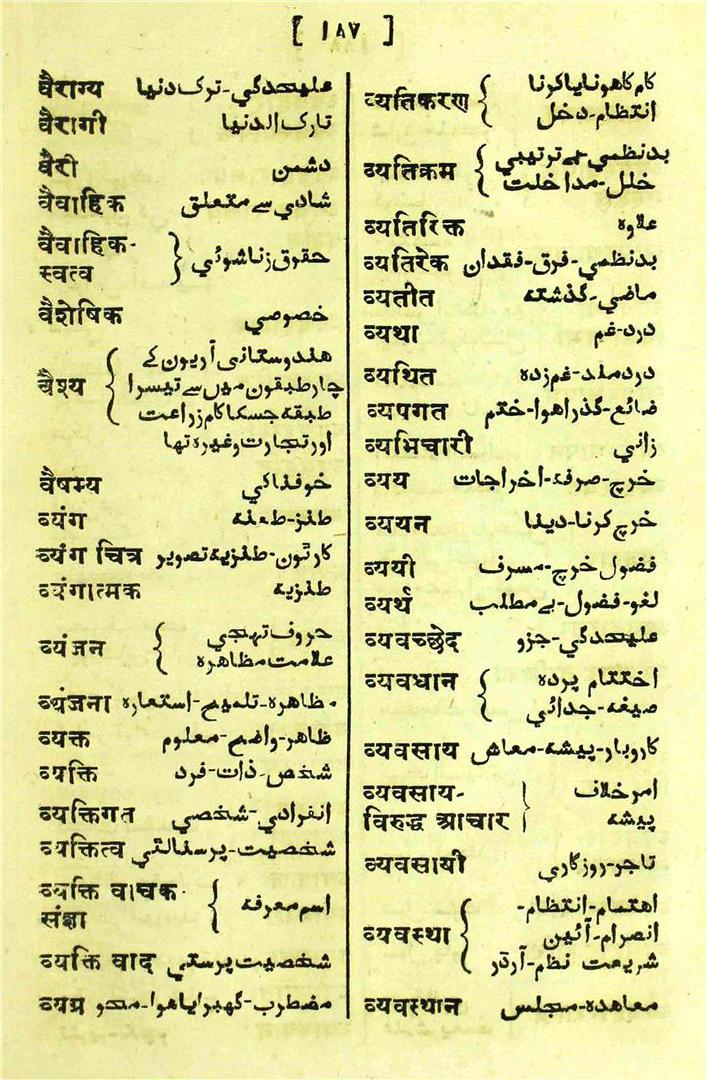 [ ١٨٧ ]
वैराग्य علیحدگي-ترک دنیا
वैरागी تارک الدنیا
वैरी دشمن
वैवाहिक شادي سے متعلق
वैवाहिक-
स्वत्व } حقوق زناشوئي
वैशेषिक خصوصي
वैश्य { هندوستانی آریوں کے
چار طبقوں میں سے تیسرا
طبقه جسکا کام زراعت
اور تجارت وغیره تها
वैषम्य خوفناکي
व्यंग طنز-طعنه
व्यंग चित्र کارٹون-طنزیه تصویر
व्यंगात्मक طنزیه
व्यंजन { حروف تهجي
علامت مظاهره
व्यंजना مظاهره-تلمیح-استعاره
व्यक्त ظاهر-واضح-معلوم
व्यक्ति شخص-ذات-فرد
व्यक्तिगत انفرادي-شخصي
व्यक्तित्व شخصیت-پرسنالٹي
व्यक्ति वाचक-
संज्ञा { اسم معرفه
व्यक्ति वाद شخصیت پرستي
व्यग्र مضطرب-گهبرایا هوا-محو
व्यतिकरण { کام کا هونا یا کرنا
انتظام-دخل
व्यतिक्रम { بدنظمي-بے ترتیبي
خلل-مداخلت
व्यतिरिक्त علاوه
व्यतिरेक بدنظمي-فرق-فقدان
व्यतीत ماضي-گذشته
व्यथा درد-غم
व्यथित دردمند-غم زده
व्यपगत ضائع-گذرا هوا-ختم
व्यभिचारी زاني
व्यय خرچ-صرفه-اخراجات
व्ययन خرچ کرنا-دینا
व्ययी فضول خرچ-مسرف
व्यर्थ لغو-فضول-بے مطلب
व्यवच्छेद علیحدگي-جزو
व्यवधान { اختتام پرده
صیغه-جدائي
व्यवसाय کاروبار-پیشه-معاش
व्यवसाय- امر خلاف
विरुद्ध आचार } پیشه
व्यवसायी تاجر-روزگاري
व्यवस्था { اهتمام-انتظام-
انصرام-آئین
شریعت نظم-آرڈر
व्यवस्थान معاهده-مجلس